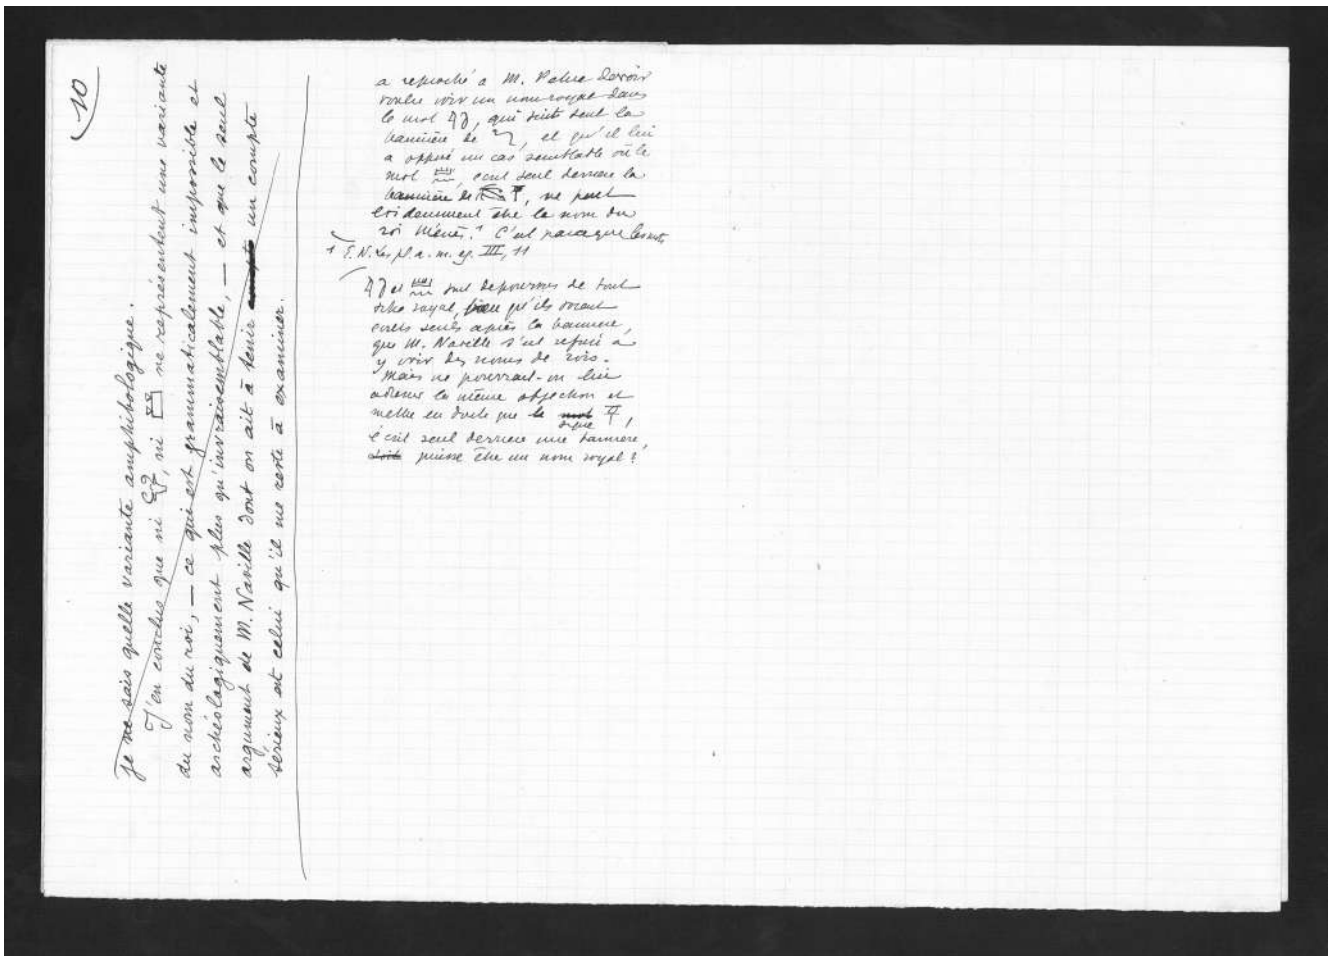 10
je ne sais quelle variante amphibologique.
J'en conclus que ni , ni ne représentent une variante
du nom du roi, — ce qui est grammaticalement impossible et
archéologiquement plus qu'invraisemblable, — et que le seul
argument de M. Naville dont on ait à tenir compte un compte
sérieux est celui qu'il me reste à examiner.
a reproché à M. Petrie d'avoir
voulu voir un nom royal dans
le mot , qui suit seul la
bannière de , et qu'il lui
a opposé un cas semblable où le
mot , écrit seul derrière la
bannière de , ne peut
évidemment être le nom du
roi Ménès.¹ C'est parce que les mots
1 E. N. Les pl. a. m. eg. III, 11
et sont dépourvus de tout
titre royal, bien qu'ils soient
écrits seuls après la bannière,
que M. Naville s'est refusé à
y voir des noms de rois.
Mais ne pourrait-on lui
adresser la même objection et
mettre en doute que le mot signe ,
écrit seul derrière une bannière,
doit puisse être un nom royal ?